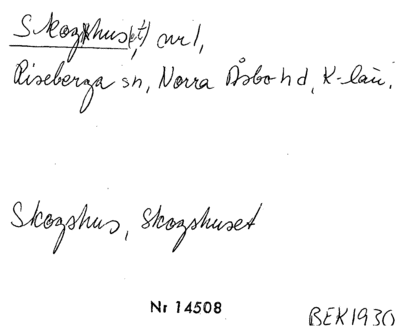 Skogshus(et) nr 1,
Riseberga sn, Norra Åsbo hd, K-län.
Skogshus, Skogshuset
Nr 14508
BEK1930